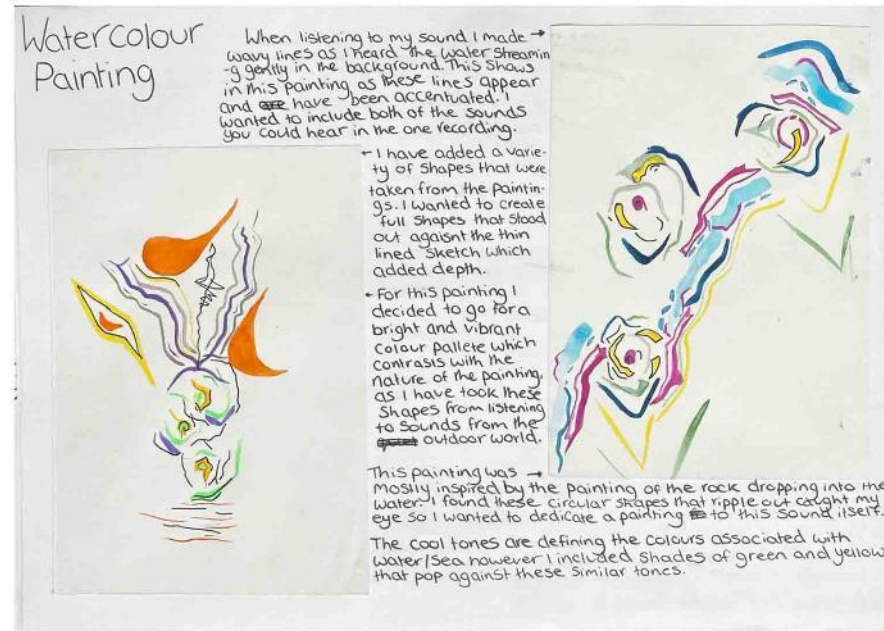 Watercolour
Painting
When listening to my sound I made →
wavy lines as I heard the water streamin
-g gently in the background. This shows
in this painting as these lines appear
and have been accentuated. I
wanted to include both of the sounds
you could hear in the one recording.
← I have added a varie-
ty of shapes that were
taken from the paintin-
gs. I wanted to create
full shapes that stood
out agaisnt the thin
lined sketch which
added depth.
← For this painting I
decided to go for a
bright and vibrant
colour pallete which
contrasts with the
nature of the painting,
as I have took these
shapes from listening
to sounds from the
outdoor world.
This painting was →
mostly inspired by the painting of the rock dropping into the
water. I found these circular shapes that ripple out caught my
eye so I wanted to dedicate a painting to this sound itself.
The cool tones are defining the colours associated with
water/sea however I included shades of green and yellow
that pop against these similar tones.